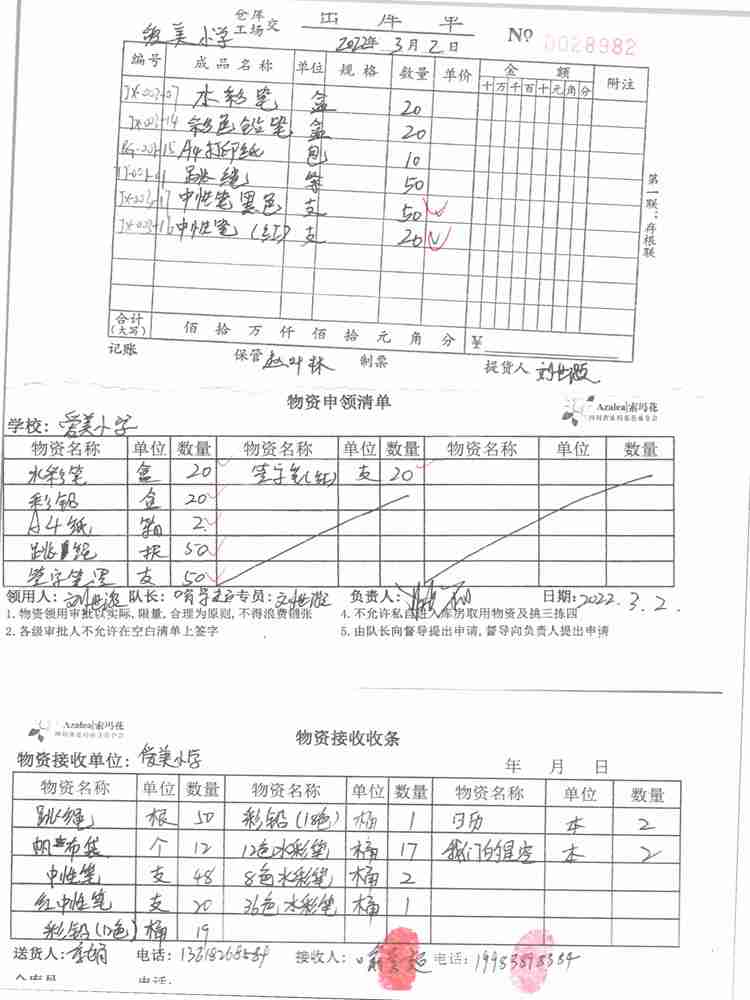 仓库
出库单
爱美小学 工场交
2022年3月2日
No 0028982
编号 成品名称 单位 规格 数量 单价 金额 附注
十万千百十元角分
水彩笔 盒 20
彩色铅笔 盒 20
A4打印纸 包 10
跳绳 50
中性笔黑色 支 50
中性笔(红) 支 20
第一联:存根联
合计(大写) 佰拾万仟佰拾元角分 ¥
记账 保管 制票 提货人
物资申领清单
Azalea|索玛花
学校:爱美小学
物资名称 单位 数量 物资名称 单位 数量 物资名称 单位 数量
水彩笔 盒 20 签字笔(红) 支 20
彩铅 盒 20
A4纸 箱 2
跳绳 根 50
签字笔黑 支 50
领用人: 队长: 专员: 负责人: 日期:2022.3.2.
1.物资领用审批以实际,限量,合理为原则,不得浪费铺张 4.不允许私自进入库房取用物资及挑三拣四
2.各级审批人不允许在空白清单上签字 5.由队长向督导提出申请,督导向负责人提出申请
Azalea|索玛花
物资接收收条
物资接收单位:爱美小学 年 月 日
物资名称 单位 数量 物资名称 单位 数量 物资名称 单位 数量
跳绳 根 50 彩铅(18色) 桶 1 日历 本 2
帆布袋 个 12 12色水彩笔 桶 17 我们的星空 本 2
中性笔 支 48 8色水彩笔 桶 2
红中性笔 支 20 36色水彩笔 桶 1
彩铅(12色) 桶 19
送货人: 电话: 接收人: 电话: